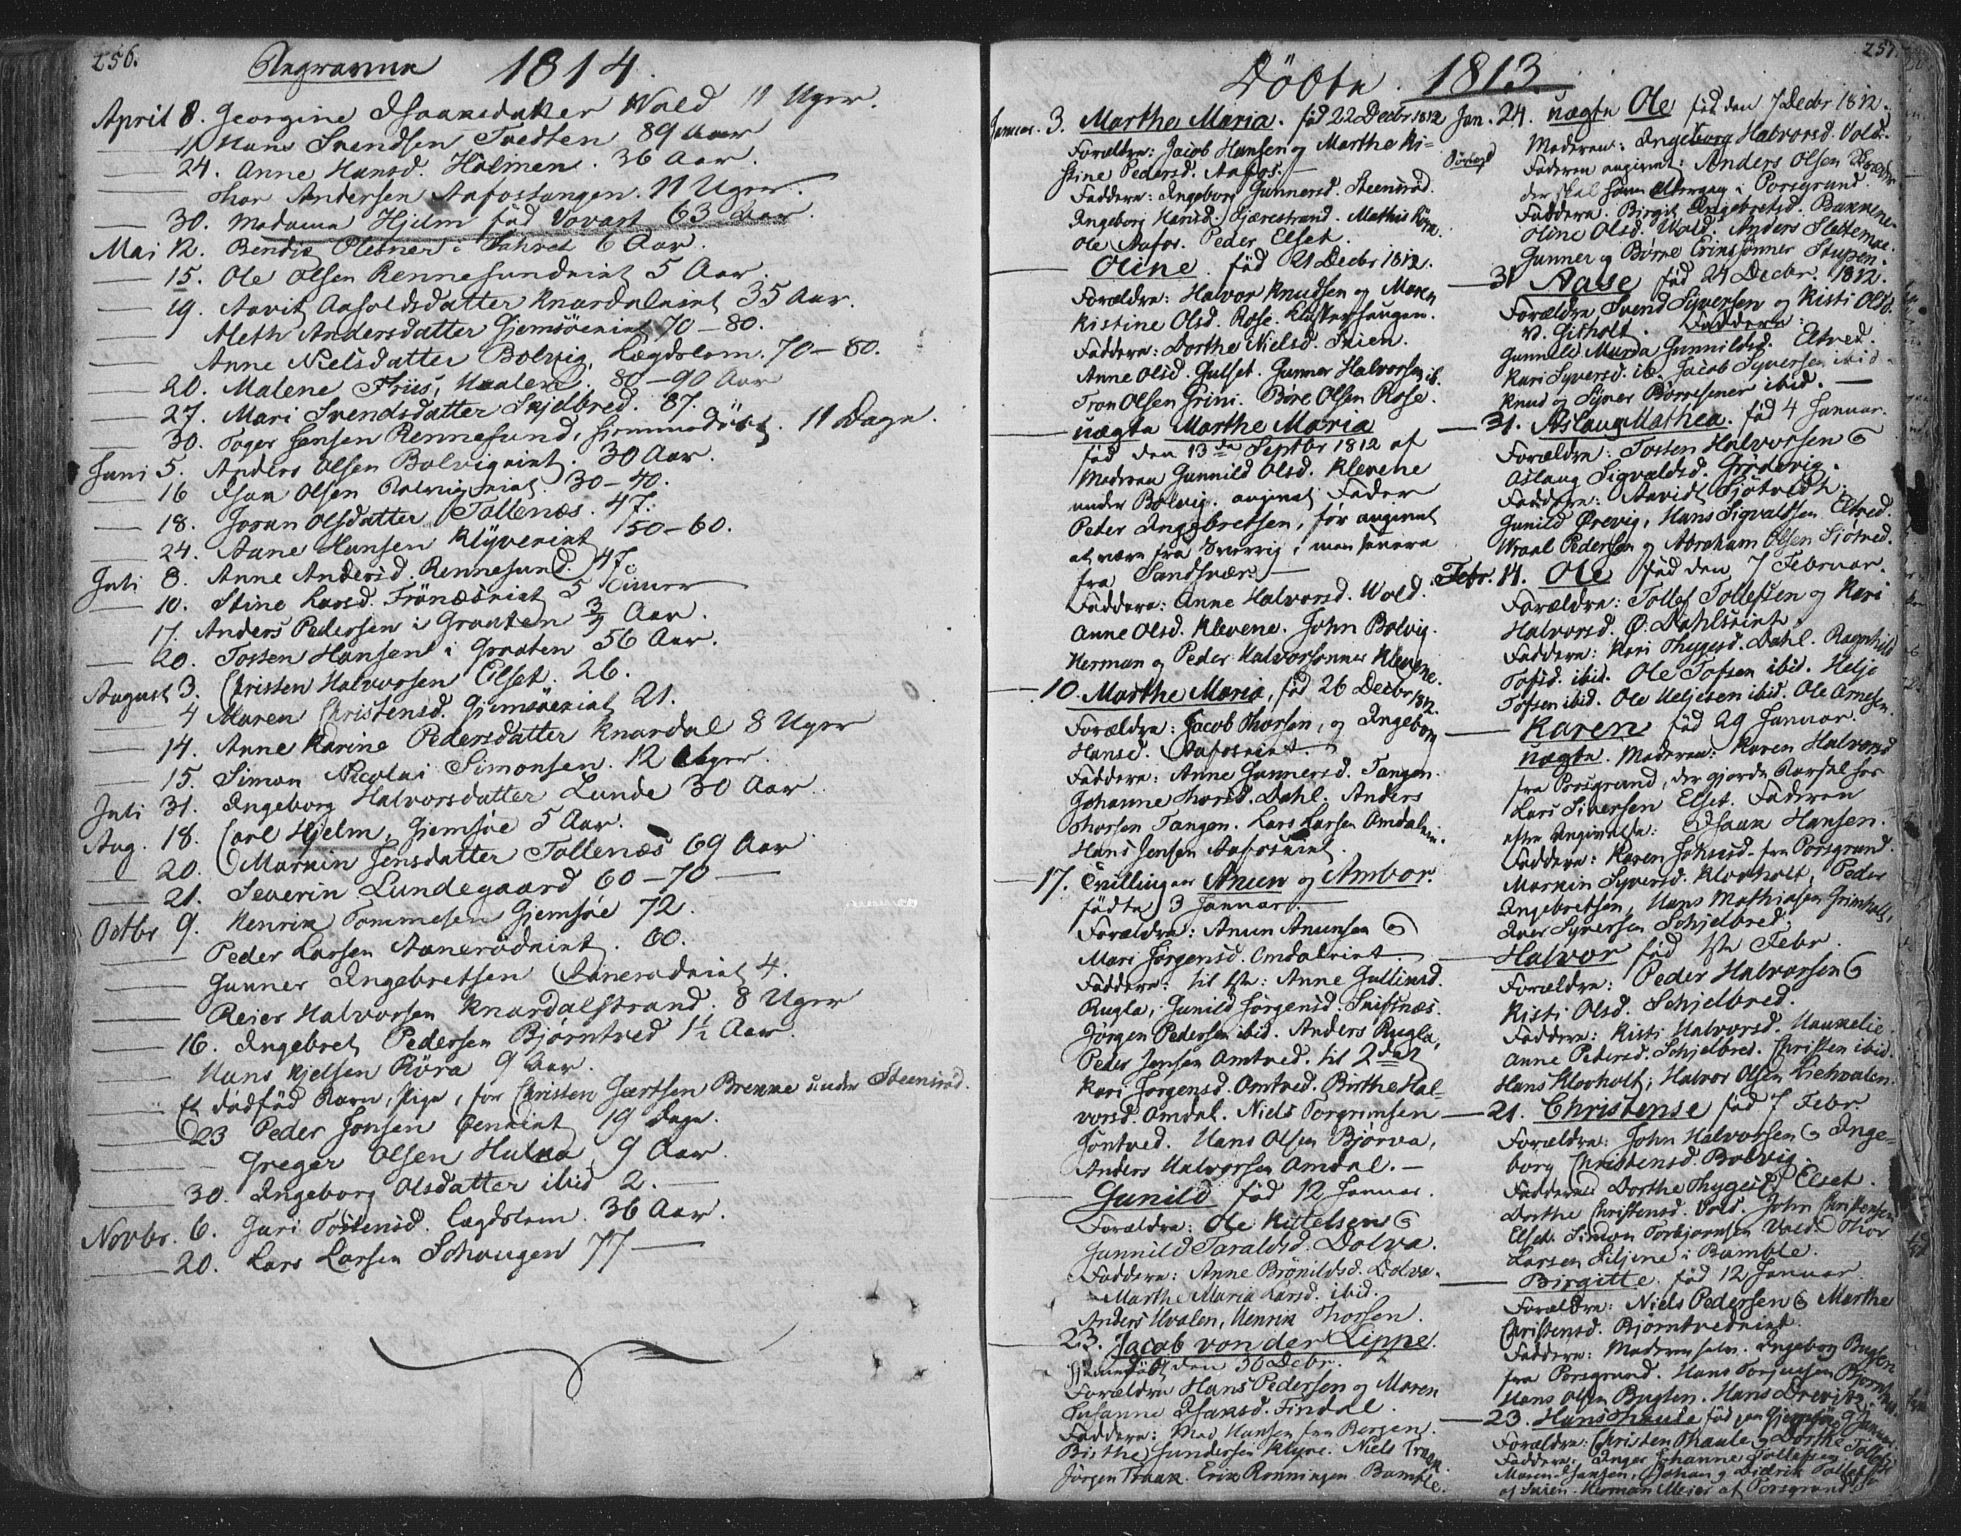 256.
Begravne 1814.
April 8. Georgine Isaaksdatter Wold 11 Uger.
11 Hans Svendsen Tvedten 89 Aar
24. Anne Hansd. Holmen. 36 Aar.
Thor Andersen Aafostangen. 11 Uger.
30. Madame Hjelm fød Vovart 63 Aar.
Mai 12. Olesner i 6 Aar.
15. Ole Olsen Rennesundeiet 5 Aar.
19. Aavit Aasoldsdatter Knardaleiet 35 Aar.
Aleth Andersdatter Gjemsøeeiet 70-80.
Anne Nielsdatter Bolvig, Lægdslem. 70-80.
20. Malene Friis, 80-90 Aar
27. Mari Svendsdatter Skjelbred. 87.
30. Hansen Rennesund, hjemmedøbt. 11 Dage.
Juni 5. Anders Olsen Bolvigeiet. 30 Aar.
16 Isak Olsen Bolvigeiet. 30-40.
18. Joran Olsdatter Tollenæs. 47.
24. Aane Hansen Klyveeiet 50-60.
Juli 8. Anne Andersd. Rennesund. 47.
10. Stine Larsd. Frönæseiet 5 Timer
17. Anders Pedersen i Graaten 3/4 Aar.
20. Tosten Hansen i Graaten 56 Aar.
August 3. Christen Halvorsen Elset. 26.
4 Maren Christensd. Gjemsøeeiet 21.
14. Anne Karine Pedersdatter Knardal 8 Uger
15. Simon Nicolai Simonsen. 12 Uger.
Juli 31. Ingeborg Halvorsdatter Lunde 30 Aar.
Aug. 18. Carl Hjelm, Gjemsøe 5 Aar.
20. Markin Jensdatter Tollenæs 69 Aar
21. Severin Lundegaard 60-70
Octbr 9. Henrik Tommesen Gjemsøe 72.
Peder Larsen Aanerødeiet. 60.
Gunner Ingebretsen Aanerødeiet 4.
Reier Halvorsen Knardalstrand. 8 Uger
16. Ingebret Pedersen Bjørntved 1½ Aar.
Hans Kjelsen Röra 9 Aar.
Et dødfød Barn, Pige, for Christen Gjertsen Brekke under Steensrød.
23 Peder Jonsen 19 dage.
Greger Olsen 9 Aar.
30. Ingeborg Olsdatter ibid 2.
Novbr. 6. Guri Tostensd. Lægdslem. 36 Aar.
20. Lars Larsen Schougen 77
257.
Döbte. 1813.
Januar. 3. Marthe Maria. fød 22 Decbr 1812
Forældre: Jacob Hansen og Marthe Ki-
stine Pedersd. Aafos.
Faddere: Ingebor Gunnersd. Steensrød.
Ingeborg Hansd. Gjærestrand. Mathis
Ole Aafos. Peder Elset.
Oline. fød 21 Decbr 1812.
Forældre: Halvor Knudsen og Maren
Kistine Olsd. Rose. Klosterhaugen.
Faddere: Dorthe Nielsd. Skien.
Anne Olsd. Gulset. Gunner Halvorsen ib.
Tron Olsen Grini. Børe Olsen Rose.
uægte Marthe Maria
fød den 13de Septbr 1812 af
Moderen Gunnild Olsd. Klevene
under Bolvig. angivet Fader
Peder Ingebretsen, før angivet
at være fra Sverrig, men senere
fra Sandsvær.
Faddere: Anne Halvorsd. Wold.
Anne Olsd. Klevene. John Bolvig.
Herman og Peder Halvorsønner Klevene.
10. Marthe Maria, fød 26 Decbr 1812.
Forældre: Jacob Thorsen, og Ingeborg
Hansd. Aafoseiet
Faddere: Anne Gunnersd. Tangen.
Johanne Thorsd. Dahl. Anders
Thorsen Tangen. Lars Larsen Amdalen.
Hans Jensen Aafoseiet.
17. Tvillinger Anun og Ambor.
fødte 3 Januar.
Forældre: Anun Anunsen og
Mari Jørgensd. Omdaleiet.
Faddere: til 1ste: Anne Gullixsd.
Rugla, Gunild Jørgensd. Skifsnæs.
Jørgen Pedersen ibid. Anders Rugla,
Peder Jensen Amtved. til 2den
Kari Jørgensd. Amtved. Birthe Hal-
vorsd. Amdal. Niels Torgrimsen
Jöntved. Hans Olsen Bjørva,
Anders Halvorsen Amdal.
Gunild fød 12 Januar.
Forældre: Ole Kittelsen og
Gunnild Taraldsd. Dolva.
Faddere: Anne Brönildsd. Dolva.
Marthe Maria Larsd. ibid.
Anders Hvalen, Henrik Thorsen.
23. Jacob von der Lippe.
Hjemdöbt den 30 Decbr.
Forældre Hans Pedersen og Maren
Susanne Isaksd. Findal.
Faddere: Mad Hansen fra Bergen.
Birthe Gundersen Klyve. Niels Traak
Jörgen Traak. Erik Rønningen Bamble.
Jan. 24. uægte Ole fød den 7 Decbr 1812.
Moderen: Ingeborg Halvorsd. Vold.
Faderen angivet: Anders Olsen
der skal have i Porsgrund.
Faddere. Birgit Ingebretsd. Bakkene.
Oline Olsd. Wold. Anders Slettenæ.
Gunner og Børre Eriksønner Stupen.
31 Aase fød 24 Decbr. 1812.
Forældre Svend Syversen og Kisti Olsd.
V. Gisholt. Faddere:
Gunnild Marda Gunnildsd. Eltved.
Kari Syversd. ib. Jacob Syversen ibid.
Knud og Syver Børresener ibid.
31. Aslaug Mathea. fød 4 Januar.
Forældre: Tosten Halvorsen og
Aslaug Sigvaldsd. Grødevig.
Faddere: Aavid Sjøtvedt:
Gunild Ørevig, Hans Sigvaldsen Eltved.
Wraal Pedersen og Abraham Olsen Sjötved.
Febr. 14. Ole fød den 7 Februar.
Forældre: Tollef Tollefsen og Kari
Halvorsd. Ø. Dahlseiet.
Faddere: Kari Thygesd. Dahl. Ragnhild
Tofsd. ibid. Ole Tofsen ibid. Helje
Tofsen ibid. Ole Heljesen ibid. Ole Arnesen.
Karen fød 29 Januar.
uægte. Moderen: Karen Halvorsd
fra Porsgrund, der gjorde Barsel hos
Lars Siversen Elset. Faderen
efter Angivelse: Isaak Hansen.
Faddere: Karen Johnsd. fra Porsgrund.
Markin Syversd. Klovholt, Peder
Ingebretsen, Hans Mathiasen Grimholt,
Iver Syversen Schjelbred.
Halvor fød 1ste Febr.
Forældre: Peder Halvorsen og
Kisti Olsd. Schjelbred.
Faddere: Kisti Halvorsd. Haukelie.
Anne Pedersd. Schjelbred. Christen ibid.
Hans Klovholt; Halvor Olsen
21. Christense fød 7 Febr.
Forældre: John Halvorsen og Inge-
borg Christensd. Bolvig.
Faddere: Dorthe Thygesd, Elset.
Dorthe Christensd. Vold. John Christensen
Elset. Simon Torbjørnsen Vold. Thor
Larsen Siljene i Bamble.
Birgitte. fød 12 Januar.
Forældre: Niels Pedersen og Marthe
Christensd. Bjørntvedeiet.
Faddere: Moderen selv. Ingeborg Buglen
fra Porsgrund. Hans Torjusen Bjørntv.
Hans Olsen Buglen. Hans
23. Hans Thaule fød paa Gjemsøe 9 Januar.
Forældre: Christen Thaule og Dorthe Tollefsen
Faddere: Inger Johanne Tollefsen
Maren Hansen, Johan og Diderik Tollefsen
af Skien. Herman Meier af Porsgrund.